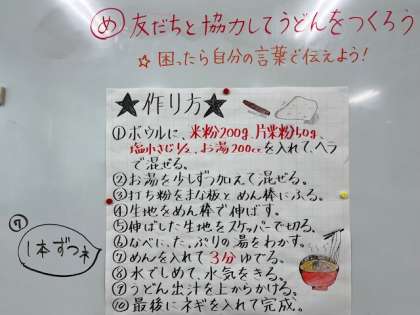 め 友だちと協力してうどんをつくろう
☆困ったら自分の言葉で伝えよう!
★作り方★
①ボウルに、米粉200g、片栗粉50g、
塩小さじ1/2、お湯200ccを入れて、ヘラ
で混ぜる。
②お湯を少しずつ加えて混ぜる。
③打ち粉をまな板とめん棒にふる。
④生地をめん棒で伸ばす。
⑤伸ばした生地をスケッパーで切る。
⑥なべに、たっぷりの湯をわかす。
⑦めんを入れて3分ゆでる。
⑧水でしめて、水気をきる。
⑨うどん出汁を上からかける。
⑩最後にネギを入れて完成。
⑦
1本ずつネ